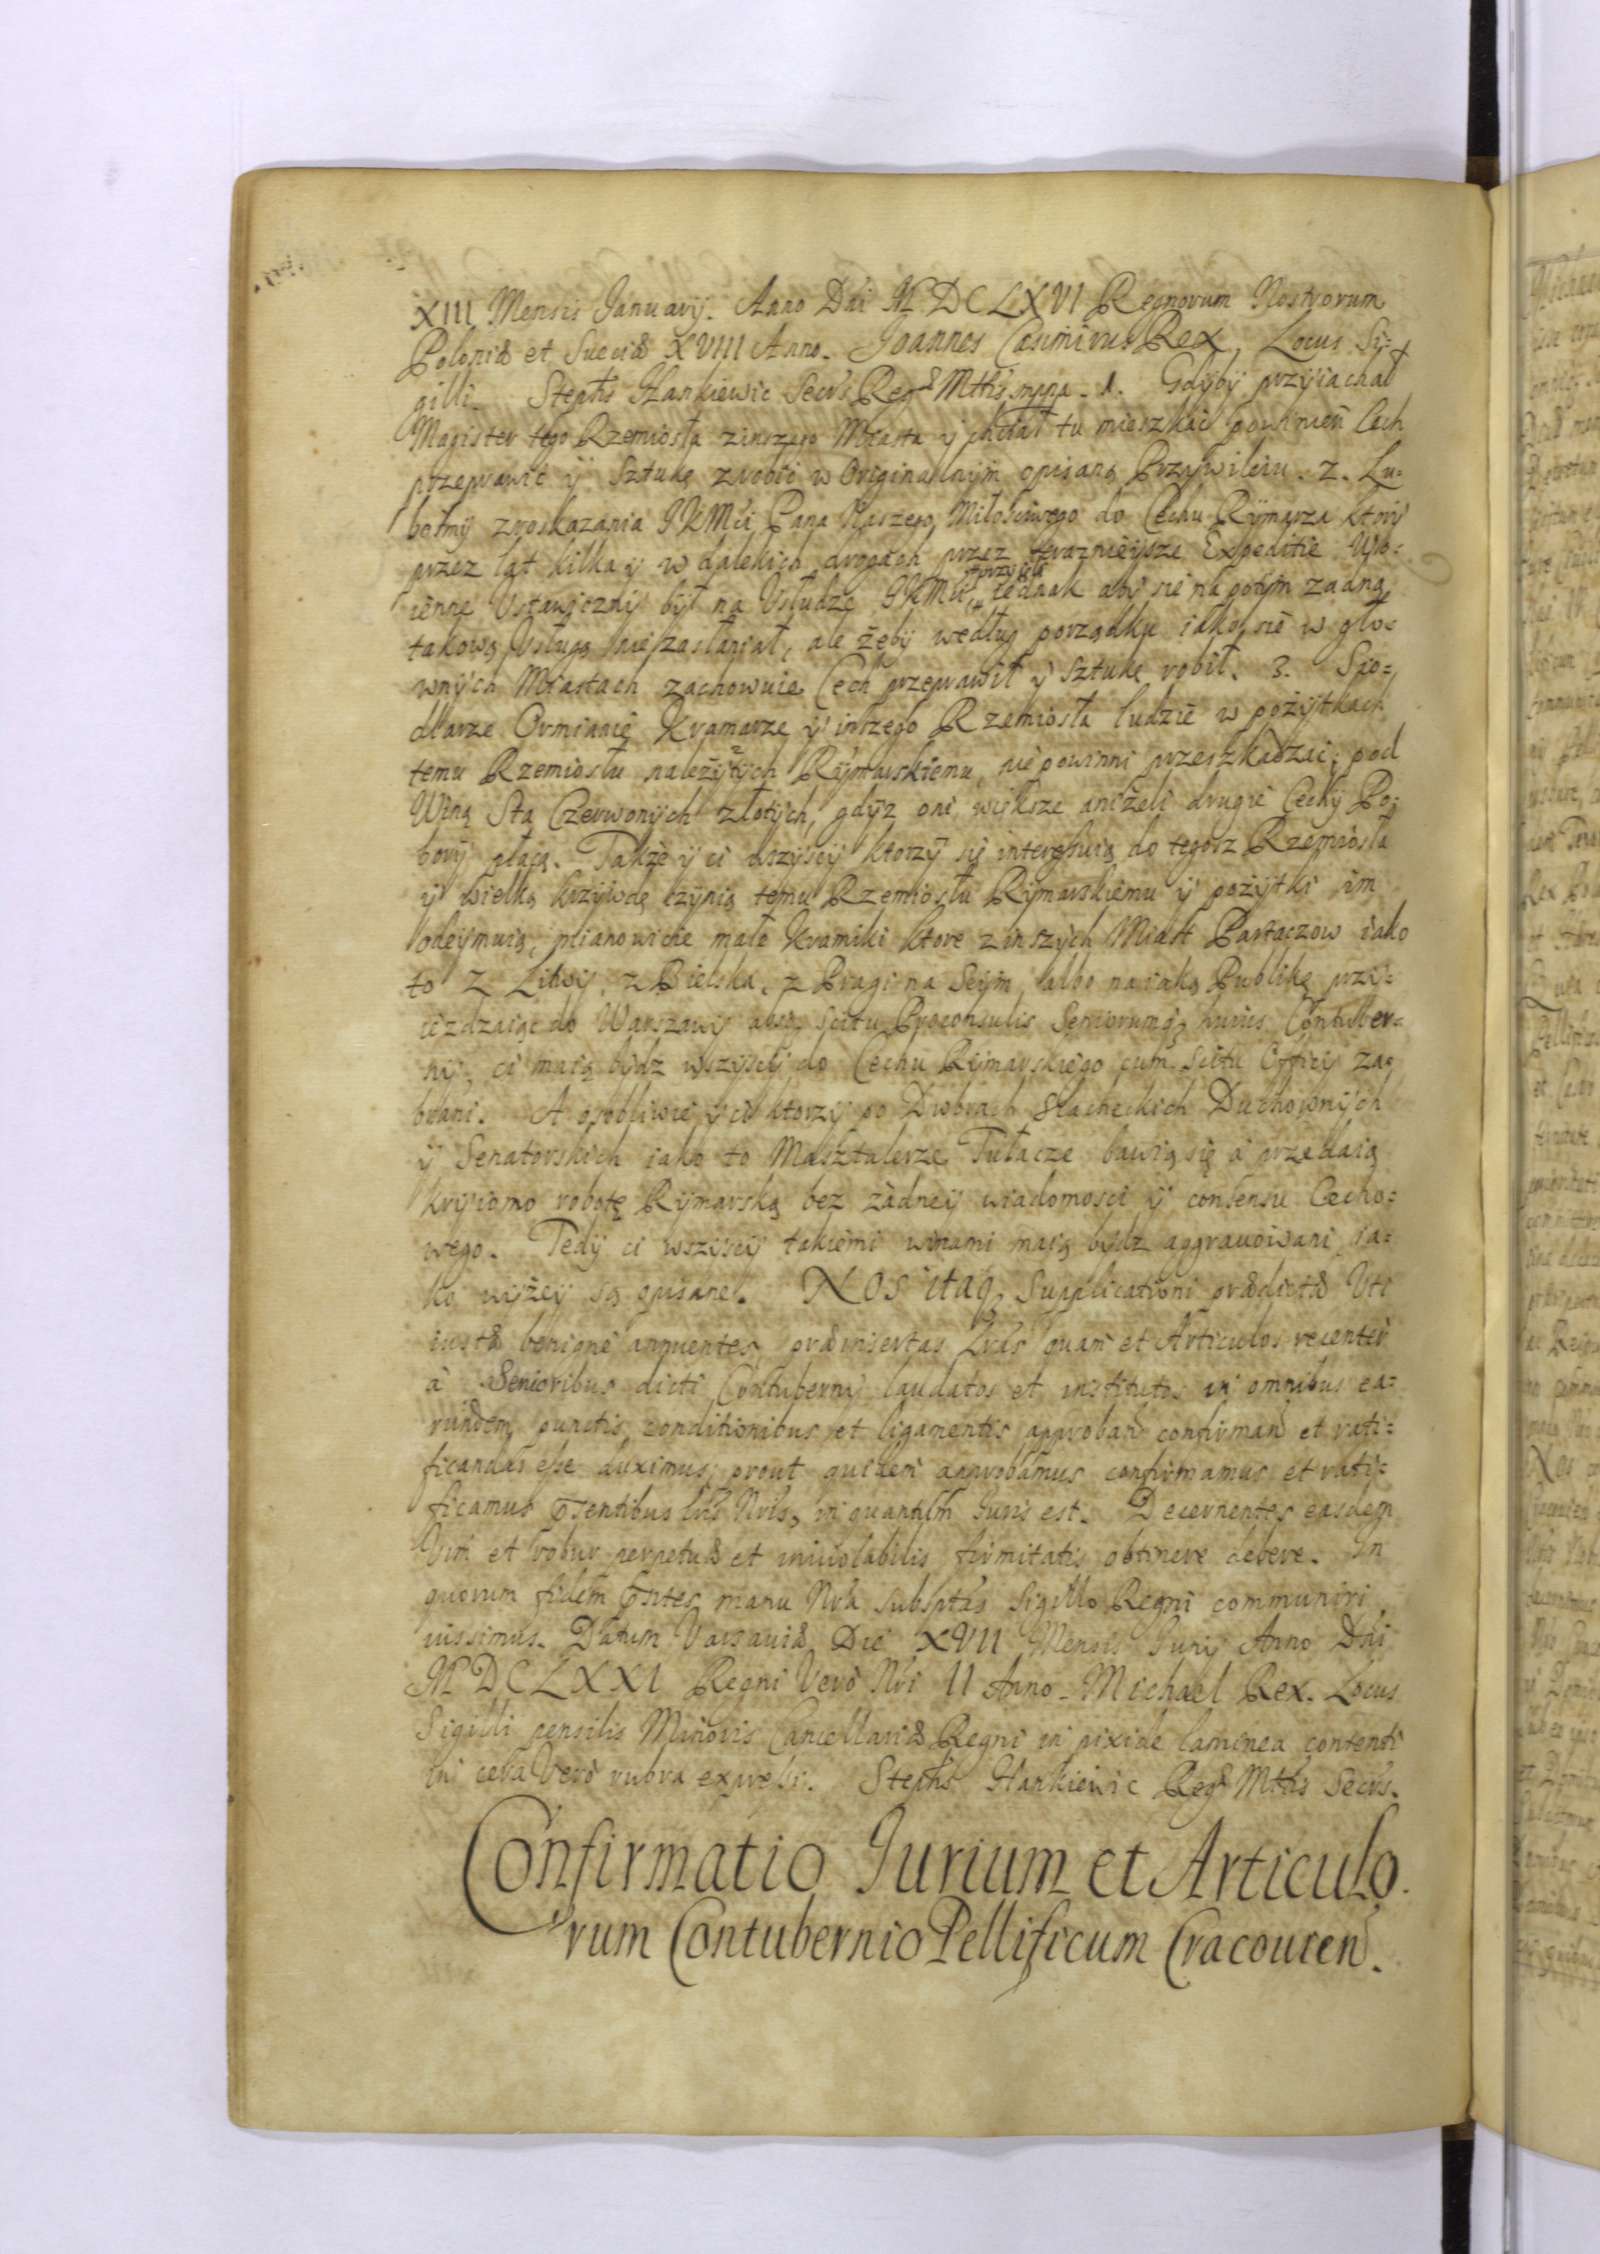 XIII Mensis Januarij. Anno Dni MDCLXVI Regnorum Nostrorum
Poloniæ et Sueciæ XVIII Anno. Joannes Casimirus Rex. Locus Si=
gilli. Stephs Hankiewic Secrs Regæ Mttis mppa. 1. Gdyby przyiachał
Magister tego Rzemiosła zinszego Miasta y chciał tu mieszkać powinień Cech
przeprawić y Sztukę zrobić w Originalnym opisaną Przywileiu. 2. Lu=
bośmy zroskazania JKMci Pana Naszego Miłosciwego do Cechu Rymarza ktory
przez lat kilka y w dalekich drogach przez terazniejsze Expeditie Wo=
ienne Ustawiczny był na Usłudze JKMci przyieli iednak aby się na potym zadną
takową Usługą nie zasłaniał, ale żeby według porządku iako się w gło=
wnych Miastach zachowuie Cech przeprawił y Sztukę robił. 3. Sio=
dłarze Ormianie Kramarze y inszego Rzemiosła ludzie w pożytkach
temu Rzemiosłu należytych Rymarskiemu, nie powinni przeszkadzać; pod
Winą Sta Czerwonych złotych, gdyz oni większe aniżeli drugie Cechy Po=
bory płacą. Także y ci wszyscy ktorzy się interessuią do tegosz Rzemiosła
y wielką krzywdę czynią temu Rzemiosłu Rymarskiemu y pożytki im
odeymuią, mianowicie małe kramiki ktore zinszych Miast Partaczow iako
to z Litwy, z Bielska, z Pragi na Seym albo na iaką Publikę przy=
ieżdzaiąc do Warszawy absq scitu Proconsulis Seniorumq huius Contuber=
nij, ci maią bydz wszyscy do Cechu Rymarskiego cum scitu Officij za=
brani. A osobliwie y ci ktorzy po Dworach Slacheckich Duchownych
y Senatorskich iako to Masztalerze Tułacze bawią się a przedaią
kryiomo robotę Rymarską bez żadney wiadomosci y consensu Cecho=
wego. Tedy ci wszyscy takiemi winami maią bydz aggrauowani ia=
ko wyżey są opisane. Nos itaq Supplicationi prædictæ Uti
iustæ benigne annuentes, præinsertas Lras quam et Articulos recenter
à Senioribus dicti Contubernij laudatos et institutos in omnibus ea=
rundem punctis, conditionibus et ligamentis approband confirmand et rati=
ficandas esse duximus, prout quidem approbamus confirmamus et rati=
ficamus Pntibus Lris Nris, in quantum Juris est. Decernentes easdem
Vim et robur perpetuæ et inviolabilis firmitatis obtinere debere. In
quorum fidem Pntes manu Nra subsptas Sigillo Regni communiri
iussimus. Datum Varsauiæ Die XVII Mensis Junij Anno Dni
MDCLXXI Regni Vero Nri II Anno. Michael Rex. Locus
Sigilli pensilis Minoris Cancellariæ Regni in pixide laminea contenti
in cera Vero rubra expressi. Stephs Hankiewic Regæ Mttis Secrs.
Confirmatio Jurium et Articulo
rum Contubernio Pellificum Cracouien.